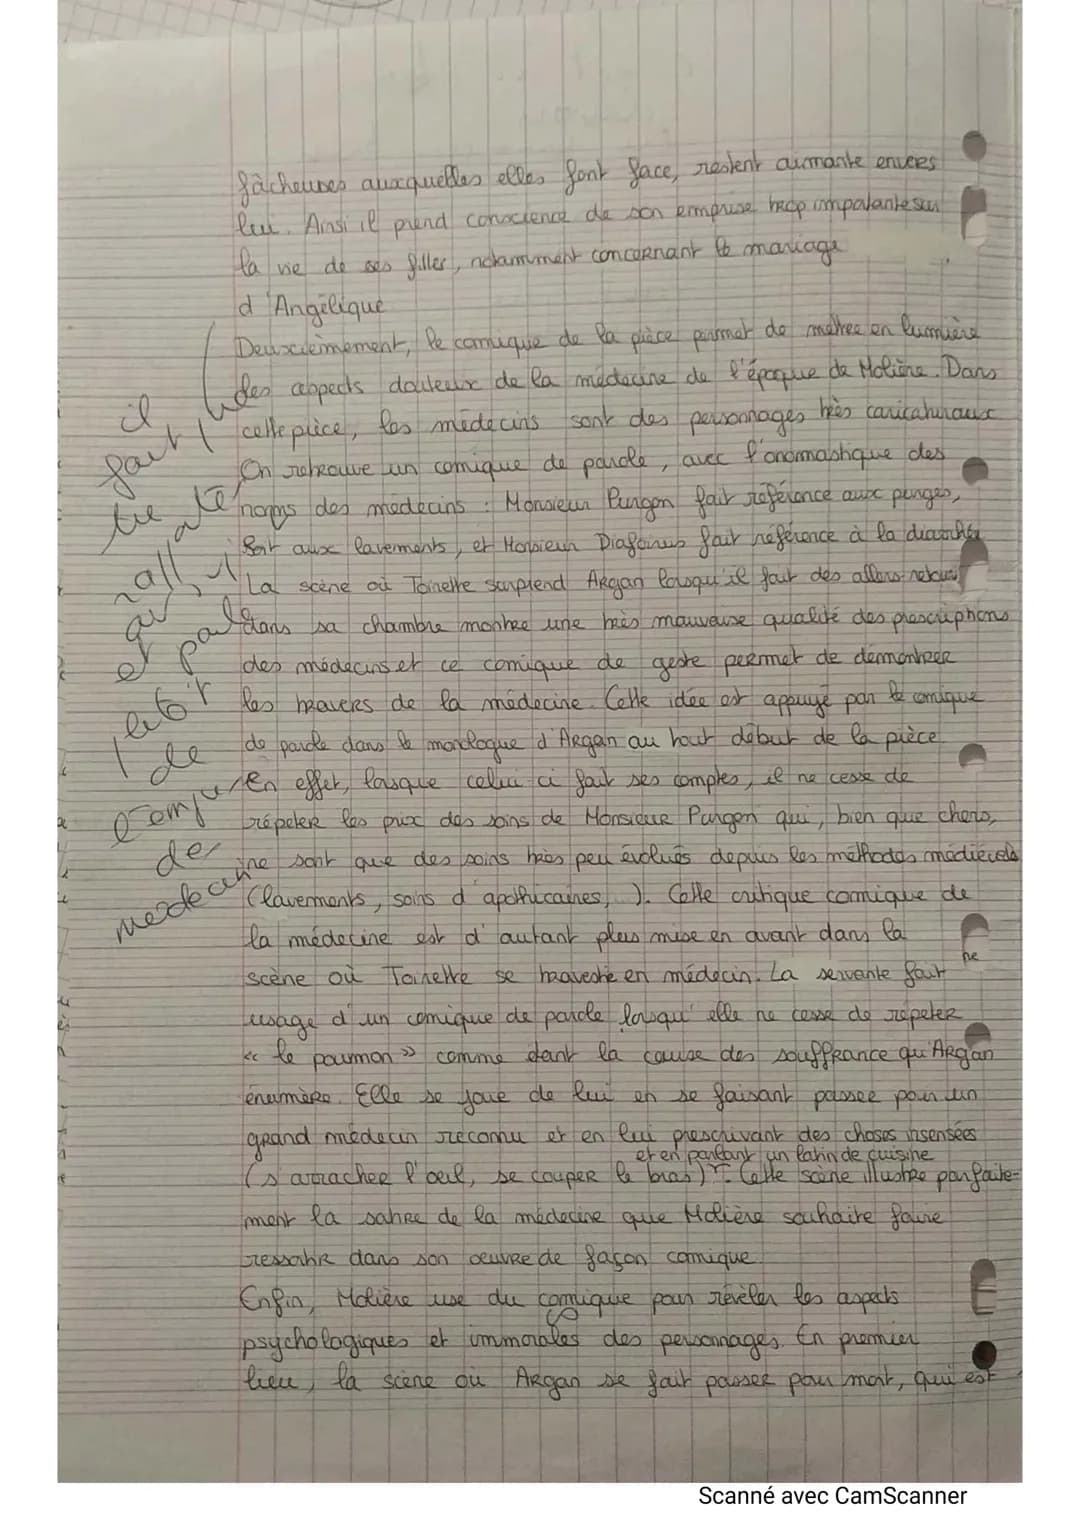 fâcheuses auxquelles elles font face, restent aimante envers
lui. Ainsi il prend conscience de son emprise trop impatante sur
la vie de ses filles, notamment concernant le mariage
d'Angélique
Deuxièmement, le comique de la pièce permet de mettre en lumière
les aspects douteux de la médecine de l'époque de Molière. Dans
cette pièce, les médecins sont des personnages très caricaturaux
On retrouve un comique de parole, avec l'onomastique des
noms des médecins : Monsieur Purgon fait référence aux purges,
soit aux lavements, et Monsieur Diafoirus fait référence à la diarrhée
La scène où Toinette surprend Argan lorsqu'il fait des allers-retours
dans sa chambre montre une très mauvaise qualité des prescriptions
des médecins et ce comique de geste permet de démontrer
les travers de la médecine. Cette idée est appuyé par le comique
de parole dans le monologue d'Argan au tout début de la pièce
En effet, lorsque celui ci fait ses comptes, il ne cesse de
répéter les prix des soins de Monsieur Purgon qui, bien que chers,
ne sont que des soins très peu évolués depuis les méthodes médiévales
(lavements, soins d'apothicaires, ). Cette critique comique de
la médecine est d'autant plus mise en avant dans la
scène où Toinette se travestie en médecin. La servante fait
usage d'un comique de parole lorsqu'elle ne cesse de répéter
« le poumon » comme étant la cause des souffrance qu'Argan
énumère. Elle se joue de lui en se faisant passer pour un
grand médecin reconnu et en lui prescrivant des choses insensées
et en parlant un latin de cuisine
(s'arracher l'oeil, se couper le bras). Cette scène illustre parfaite-
ment la satire de la médecine que Molière souhaite faire
ressortir dans son oeuvre de façon comique
Enfin, Molière use du comique pour révéler les aspects
psychologiques et immorales des personnages. En premier
lieu, la scène où Argan se fait passer pour mort, qui est
il
faut
al
et
de
de
médecine
Scanné avec CamScanner